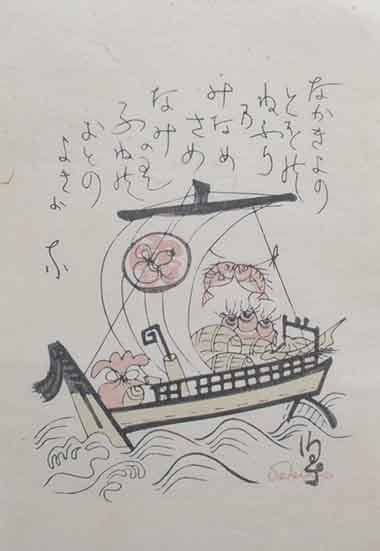 なかきよの
とをの
ねふり
の
みなめ
さめ
なみのり
ふねの
おとの
よきか
な